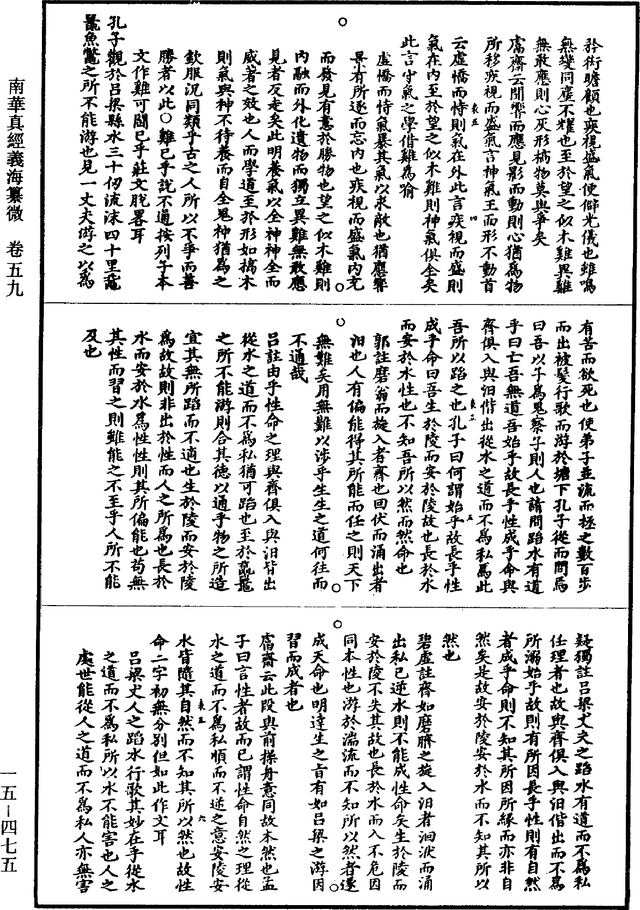 矜衒瞻顧也疾視盛氣使仰光儀也雖鳴
無變同塵不耀也至於望之似木雞異雞
無敢應則心灰形槁物莫與爭矣
膚齋云聞響而應見影而動則心猶爲物
所移疾視而盛氣言神氣王而形不動首
云虛憍而恃則氣在外此言疾視而盛則
氣在內至於望之似木雞則神氣俱全矣
此言守氣之學借雞爲喻
虛憍而恃氣暴其氣以求敵也猶應響
景有所逐而忘內也疾視而盛氣內充
而發見有意於勝物也望之似木雞則
內融而外化遺物而獨立異雞無敢應
見者反走矣此明養氣以全神神全而
威著之效也人而學道至於形如槁木
則氣與神不待養而自全鬼神猶爲之
欽服況同類乎古之人所以不爭而善
勝者以此○雞已乎說不通按列子本
文作雞可鬬已乎莊文脫畧耳
孔子觀於呂梁縣水三十仞流沫四十里黿
鼉魚鼈之所不能游也見一丈夫游之以爲
有苦而欲死也使弟子並流而極之數百步
而出被髮行歌而游於塘下孔子從而問焉
曰吾以子爲鬼察子則人也請問蹈水有道
乎曰亡吾無道吾始乎故長乎性成乎命與
齊俱入與汩偕出從水之道而不爲私焉此
吾所以蹈之也孔子曰何謂始乎故長乎性
成乎命曰吾生於陵而安於陵故也長於水
而安於水性也不知吾所以然而然命也
郭註磨翁而旋入者齊也回伏而涌出者
汩也人有偏能得其所能而任之則天下
無難矣用無難以涉乎生生之道何往而
不通哉
呂註由乎性命之理與齊俱入與汩皆出
從水之道而不爲私猶可蹈也至於黿鼉
之所不能游則合其德以通乎物之所造
宜其無所蹈而不適也生於陵而安於陵
爲故故則非出於性而人之所爲也長於
水而安於水爲性性則其所偏能也苟無
其性而習之則雖能之不至乎人所不能
及也
疑獨註呂梁丈夫之蹈水有道而不爲私
任理者也故與齊俱入與汩偕出而不爲
所溺始乎故則有所因長乎性則有自然
者成乎命則不知其所因所緣而亦非自
然矣是故安於陵安於水而不知其所以
然也
碧虛註齊如磨臍之旋入汩者洄洑而涌
出私已逆水則不能成性命矣生於陵而
安於陵不失其故也長於水而入不危因
同本性也游於湍流而不知所以然者遂
成天命也明達生之旨有如呂梁之游因
習而成者也
膚齋云此段與前操舟意同故本然也孟
子曰言性者故而已謂性命自然之理從
水之道而不爲私順而不逆之意安陵安
水皆隨其自然而不知其所以然也故性
命二字初無分別但如此作文耳
呂梁丈人之蹈水行歌其妙在乎從水
之道而不爲私所以水不能害也人之
處世能從人之道而不爲私人亦無害
南華真經義海纂微 卷五九
一五—四七五